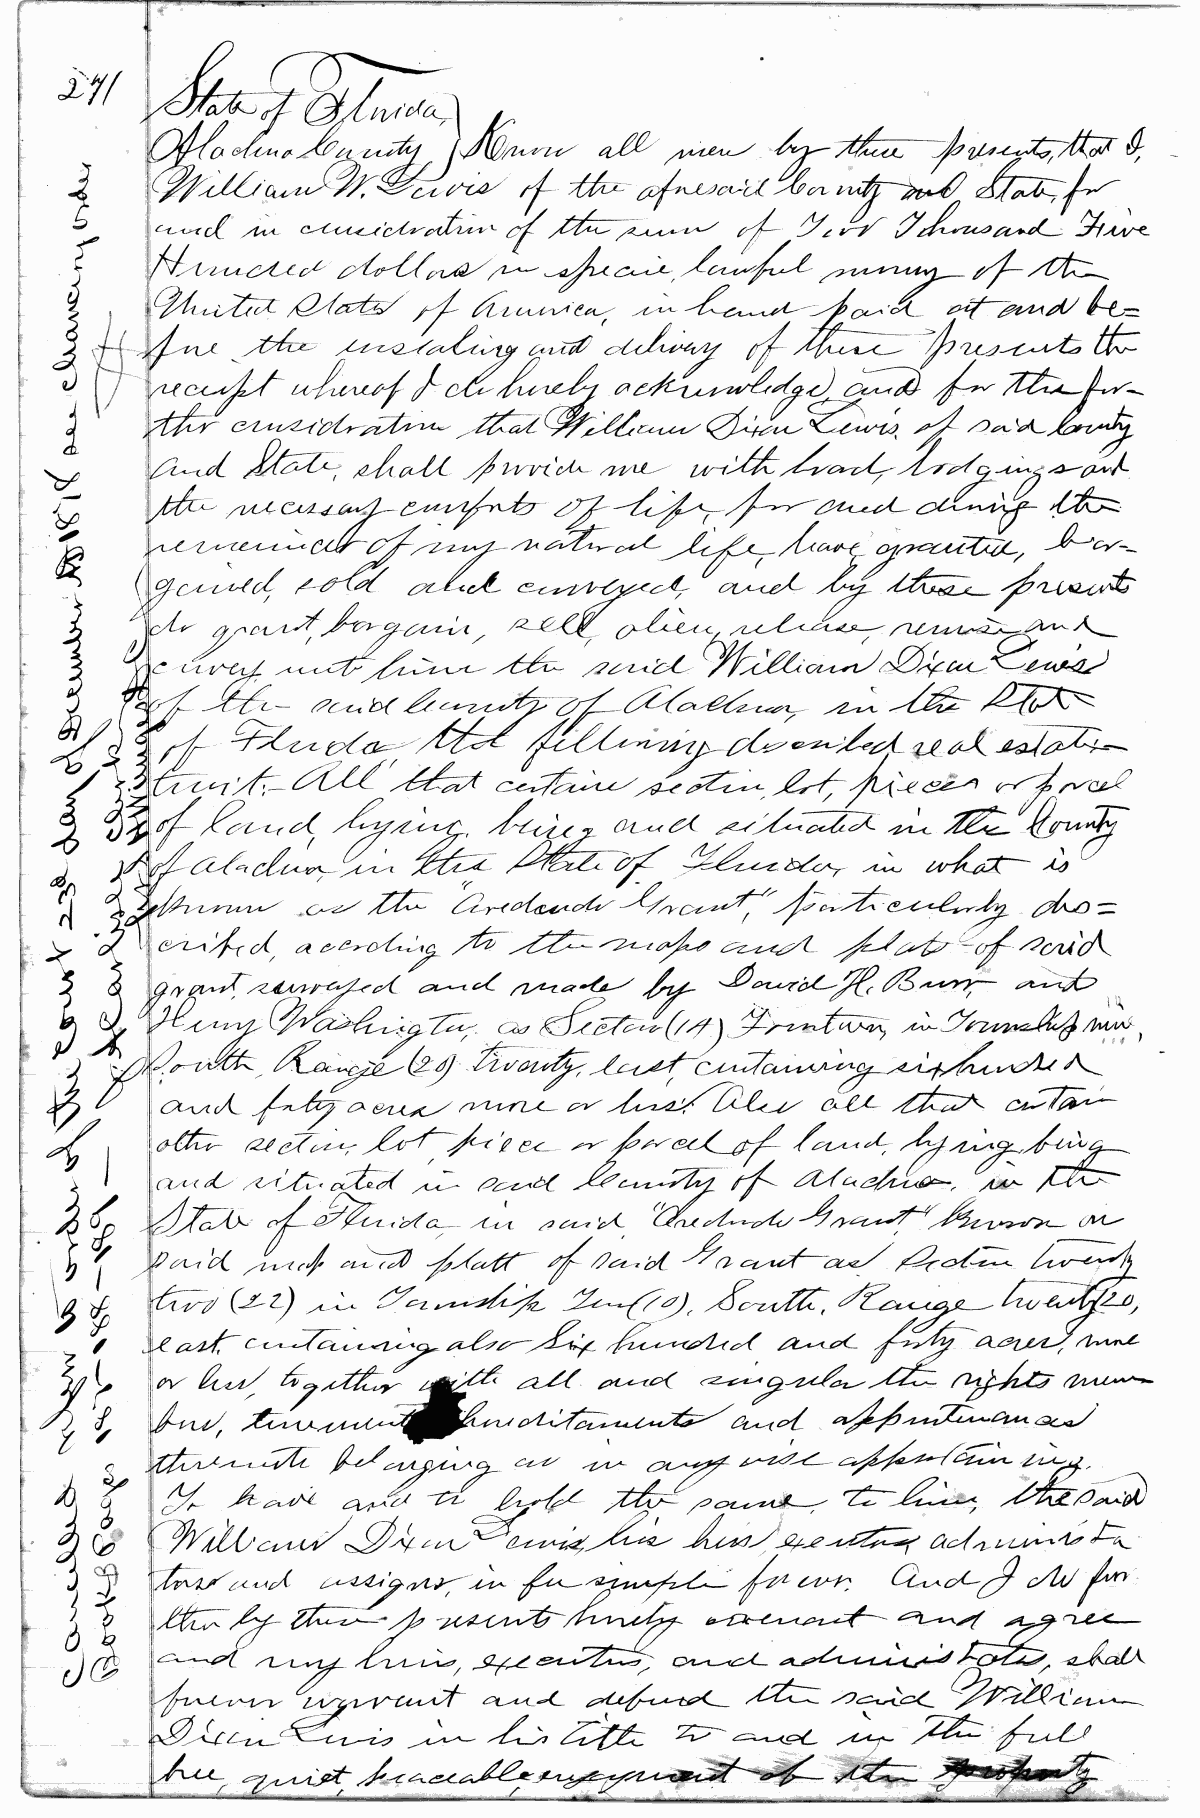 241
State of Florida,
Alachua County, } Know all men by these presents, that I,
William W. Lewis of the aforesaid County and State, for
and in consideration of the sum of Two Thousand Five
Hundred dollars in specie, lawful money of the
United States of America, in hand paid at and be=
fore the ensealing and delivery of these presents the
receipt whereof I do hereby acknowledge, and for the fur-
ther consideration that William Dixon Lewis, of said County
and State, shall provide me with board, lodgings and
the necessary comforts of life, for and during the
remainder of my natural life, have, granted, bar-
gained, sold and conveyed, and by these presents
do grant, bargain, sell, alien, release, remise and
convey unto him the said William Dixon Lewis
of the said County of Alachua, in the State
of Florida, the following described real estate
towit:- All that certain section, lot, piece or parcel
of land, lying, being and situated in the County
of Alachua, in the State of Florida, in what is
known as the "Aredondo Grant", particularly des=
cribed, according to the maps and plats of said
grant, surveyed and made by David H. Burr, and
Henry Washington, as Section (14) Fourteen, in Township nine,
South, Range (20) twenty, East, containing six hundred
and forty acres more or less. Also all that certain
other section, lot, piece or parcel of land, lying, being
and situated in said County of Alachua, in the
State of Florida, in said "Aredondo Grant", known on
said map and platt of said Grant as Section twenty
two (22) in Township Ten (10), South, Range twenty (20,
east, containing also Six hundred and forty acres, more
or less, together with all and singular the rights mem
bers, tenements hereditaments and appurtenances
thereunto belonging or in any wise appertaining.
To have and to hold the same, to him, the said
William Dixon Lewis, his heirs, executors, administra
tors and assigns, in fee simple forever. And I do fur
ther by these presents hereby covenant and agree
and my heirs, executors, and administrators, shall
forever warrant and defend the said William
Dixon Lewis in his title to and in the full
free, quiet, peaceable, enjoyment of the property